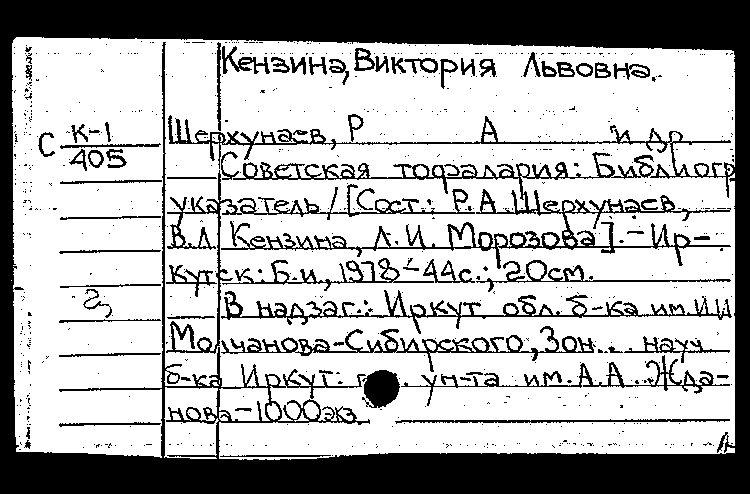 Кензина, Виктория Львовна.
Шерхунаев, Р А и др.
С К-1
405
Советская тофалария: Библиогр
указатель / [Сост.: Р.А. Шерхунаев,
В.Л. Кензина, Л.И. Морозова]. - Ир-
кутск: Б.и., 1978 - 44с.; 20см.
В надзаг.: Иркут. обл. б-ка им. И.И.
Молчанова-Сибирского, Зон. науч
б-ка Иркут. ун-та им. А.А. Жда-
нова. - 1000экз.